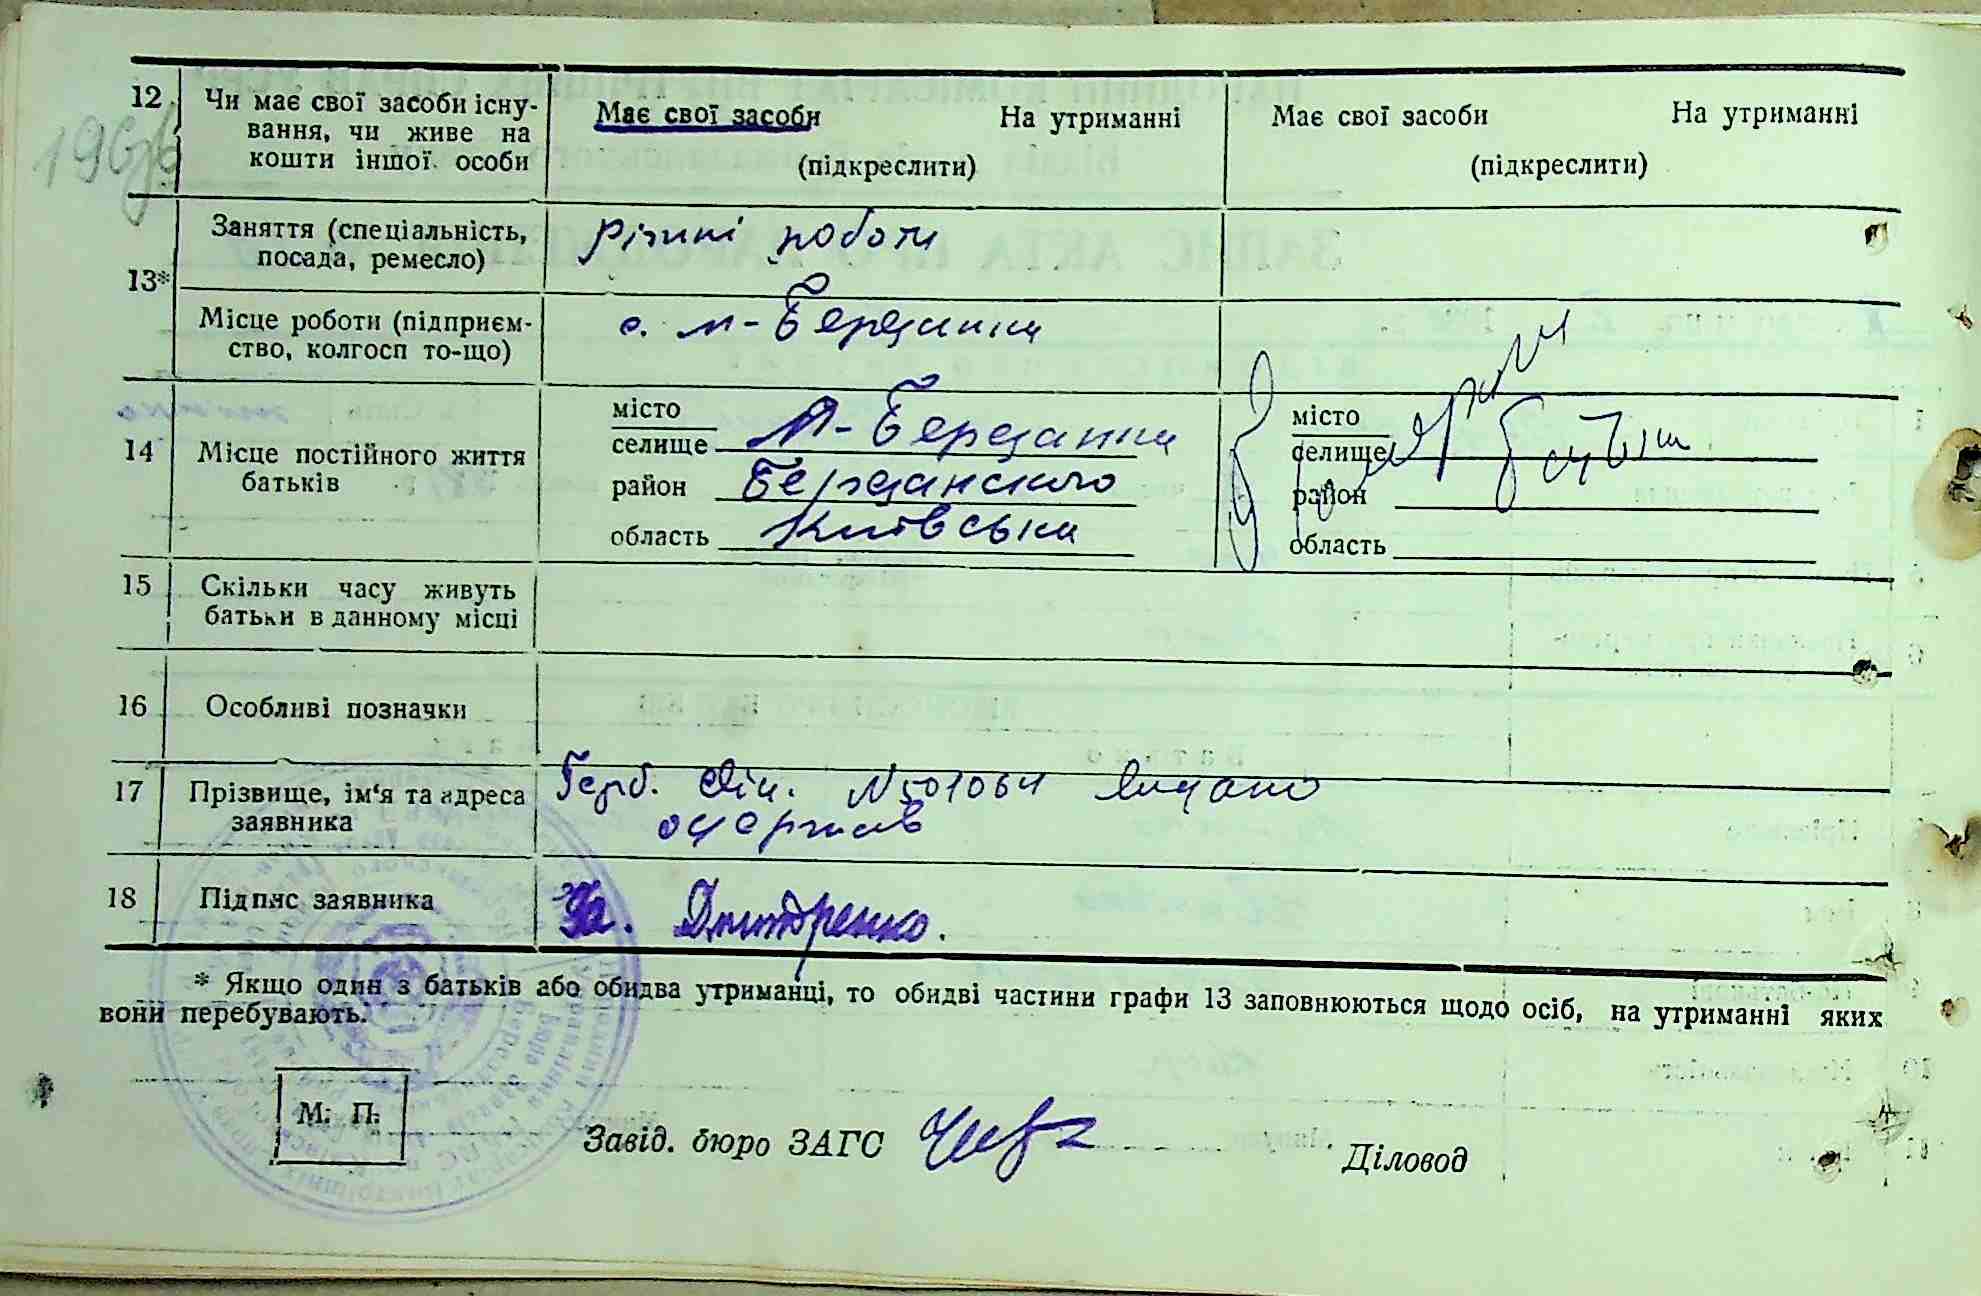 12
Чи має свої засоби існу-
вання, чи живе на
кошти іншої особи
Має свої засоби На утриманні
(підкреслити)
Має свої засоби На утриманні
(підкреслити)
13*
Заняття (спеціальність,
посада, ремесло)
різині роботи
Місце роботи (підприєм-
ство, колгосп то-що)
с. м-Березанка
14
Місце постійного життя
батьків
місто
селище М-Березанка
район Березанського
область Київська
місто
селище
район
область
15
Скільки часу живуть
батьки в данному місці
16
Особливі позначки
17
Прізвище, ім'я та адреса
заявника
Герб. свід. N501064
одержав
18
Підпис заявника
За. Дмитренко.
* Якщо один з батьків або обидва утриманці, то обидві частини графи 13 заповнюються щодо осіб, на утриманні яких
вони перебувають.
М. П.
Завід. бюро ЗАГС
Діловод